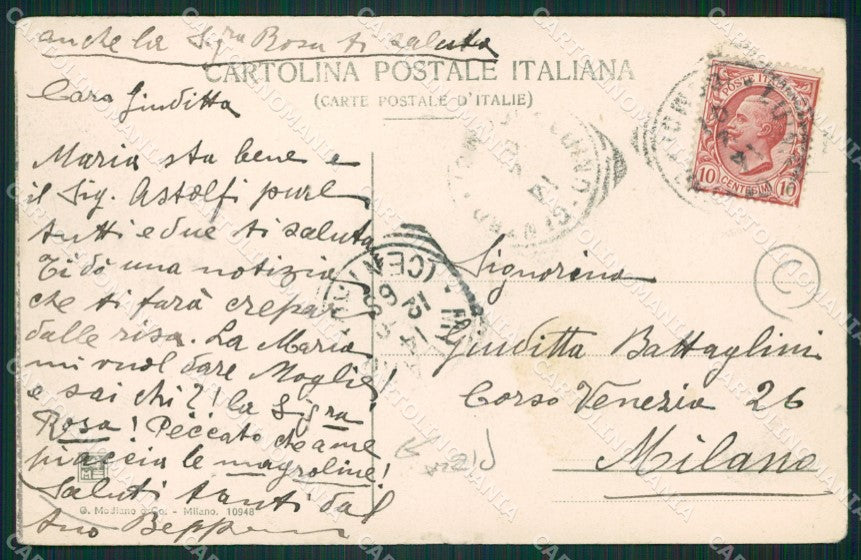 anche la Sigra Rosa ti saluta
CARTOLINA POSTALE ITALIANA
(CARTE POSTALE D'ITALIE)
Cara Giuditta
Maria sta bene e
il Sig. Astolfi pure
tutti e due ti saluta
Ti dò una notizia
che ti farà crepar
dalle risa. La Maria
mi vuol dare Moglie!
e sai chi?! la Sigra
Rosa! Peccato che a me
piaccia le magroline!
Saluti tanti dal
tuo Beppe
G. Modiano e Co. - Milano. 10948
POSTE ITALIANE
10 CENTESIMI 10
Signorina
Giuditta Battaglini
Corso Venezia 26
Milano
C
CARTOLINOMANIA